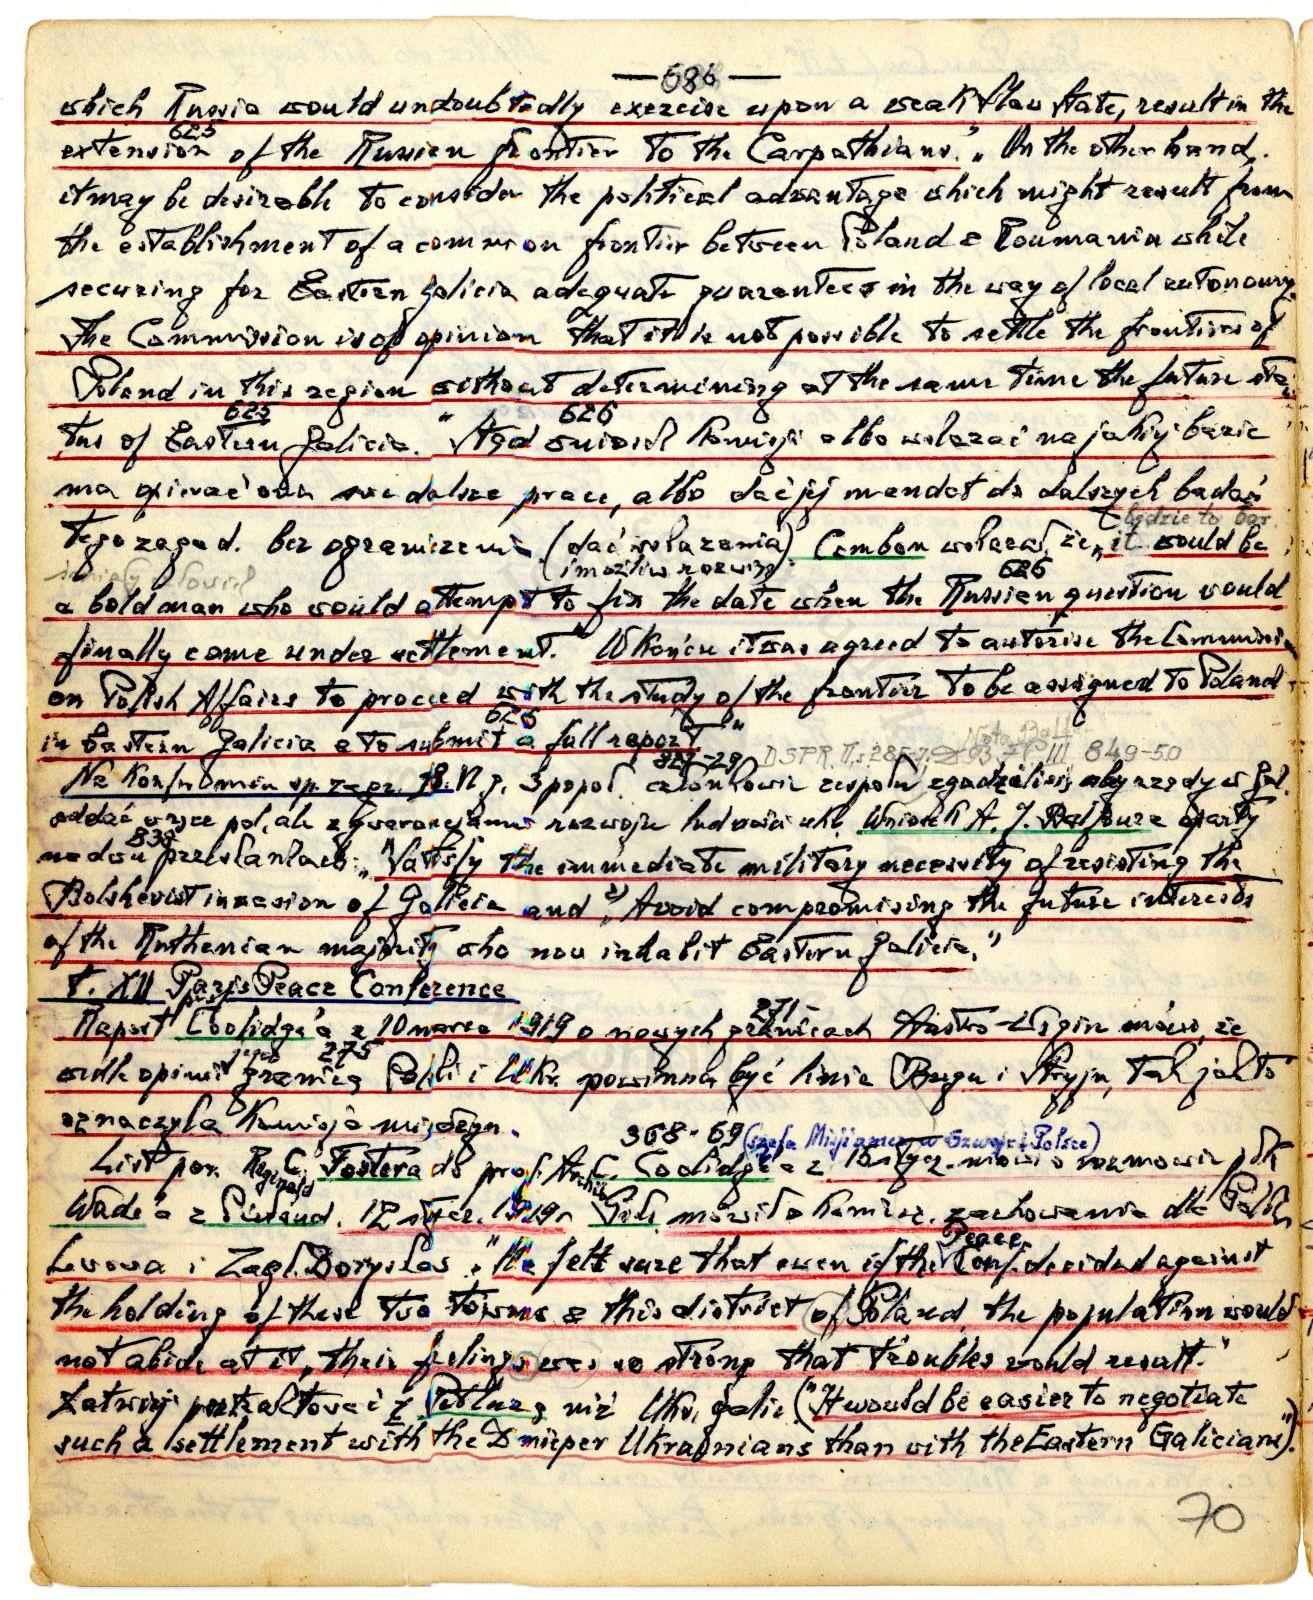 — 686 —
which Russia would undoubtedly exercise upon a weak Slav State, result in the
625
extension of the Russian frontier to the Carpathians." "On the other hand,
it may be desirable to consider the political advantage which might result from
the establishment of a common frontier between Poland & Roumania while
securing for Eastern Galicia adequate guarantees in the way of local autonomy.
The Commission is of opinion that it is not possible to settle the frontiers of
Poland in this region without determining at the same time the future sta-
625 626
tus of Eastern Galicia." Stąd wniosek Komisji albo wskazać na jakiej bazie
ma opierać swe dalsze prace, albo dać jej mandat do dalszych badań
będzie to
tego zagad. bez ograniczenia (dać wskazania). Cambon wskazał, że "it would be
626
a bold man who would attempt to fix the date when the Russian question would
finally come under settlement." W końcu it was agreed to autorise the Commissi-
on Polish Affairs to proceed with the study of the frontier to be assigned to Poland
626
in Eastern Galicia & to submit a full report"
827-29 DSPR. II, s. 285-7. III 849-50
Na Konf. w sp. zagr. 18. VI g. 3 popoł. członkowie zespołu zgadzali się, aby rządy w Gal.
oddać w ręce pol., ale z gwarancjami rozwoju ludności ukr. Wniosek A. J. Balfoura oparty
830
na dwu przesłankach: "Satisfy the immediate military necessity of resisting the
Bolshevist invasion of Galicia and 2) "Avoid compromising the future interests
of the Ruthenian majority who now inhabit Eastern Galicia."
t. XII Paris Peace Conference
271-
Raport Coolidge'a z 10 marca 1919 o nowych granicach Austro-Węgier mówi, że
jego 275
wdł. opinii granicą Polski i Ukr. powinna być linia Bugu i Stryju, tak jak to
oznaczyła Komisja
368-69 (szefa Misji amer. w Szwajc. i Polsce)
List por. Reg. C. Fostera do prof. Arch. C. Coolidge'a z 16 stycz. mówi o rozmowie płk
Reginald Archib.
Wade'a z Piłsud. 12 stycz. 1919 r. Piłs. mówił o koniecz. zachowania dla Polski
Peace
Lwowa i Zagł. Borysław. "He felt sure that even if the Conf. decided against
the holding of these two towns & this district of Poland, the population would
not abide at it, their feelings was so strong that troubles would result."
Łatwiej pertraktować z Petlurą niż Ukr. galic. ("It would be easier to negotiate
such a settlement with the Dnieper Ukrainians than with the Eastern Galicians").
70